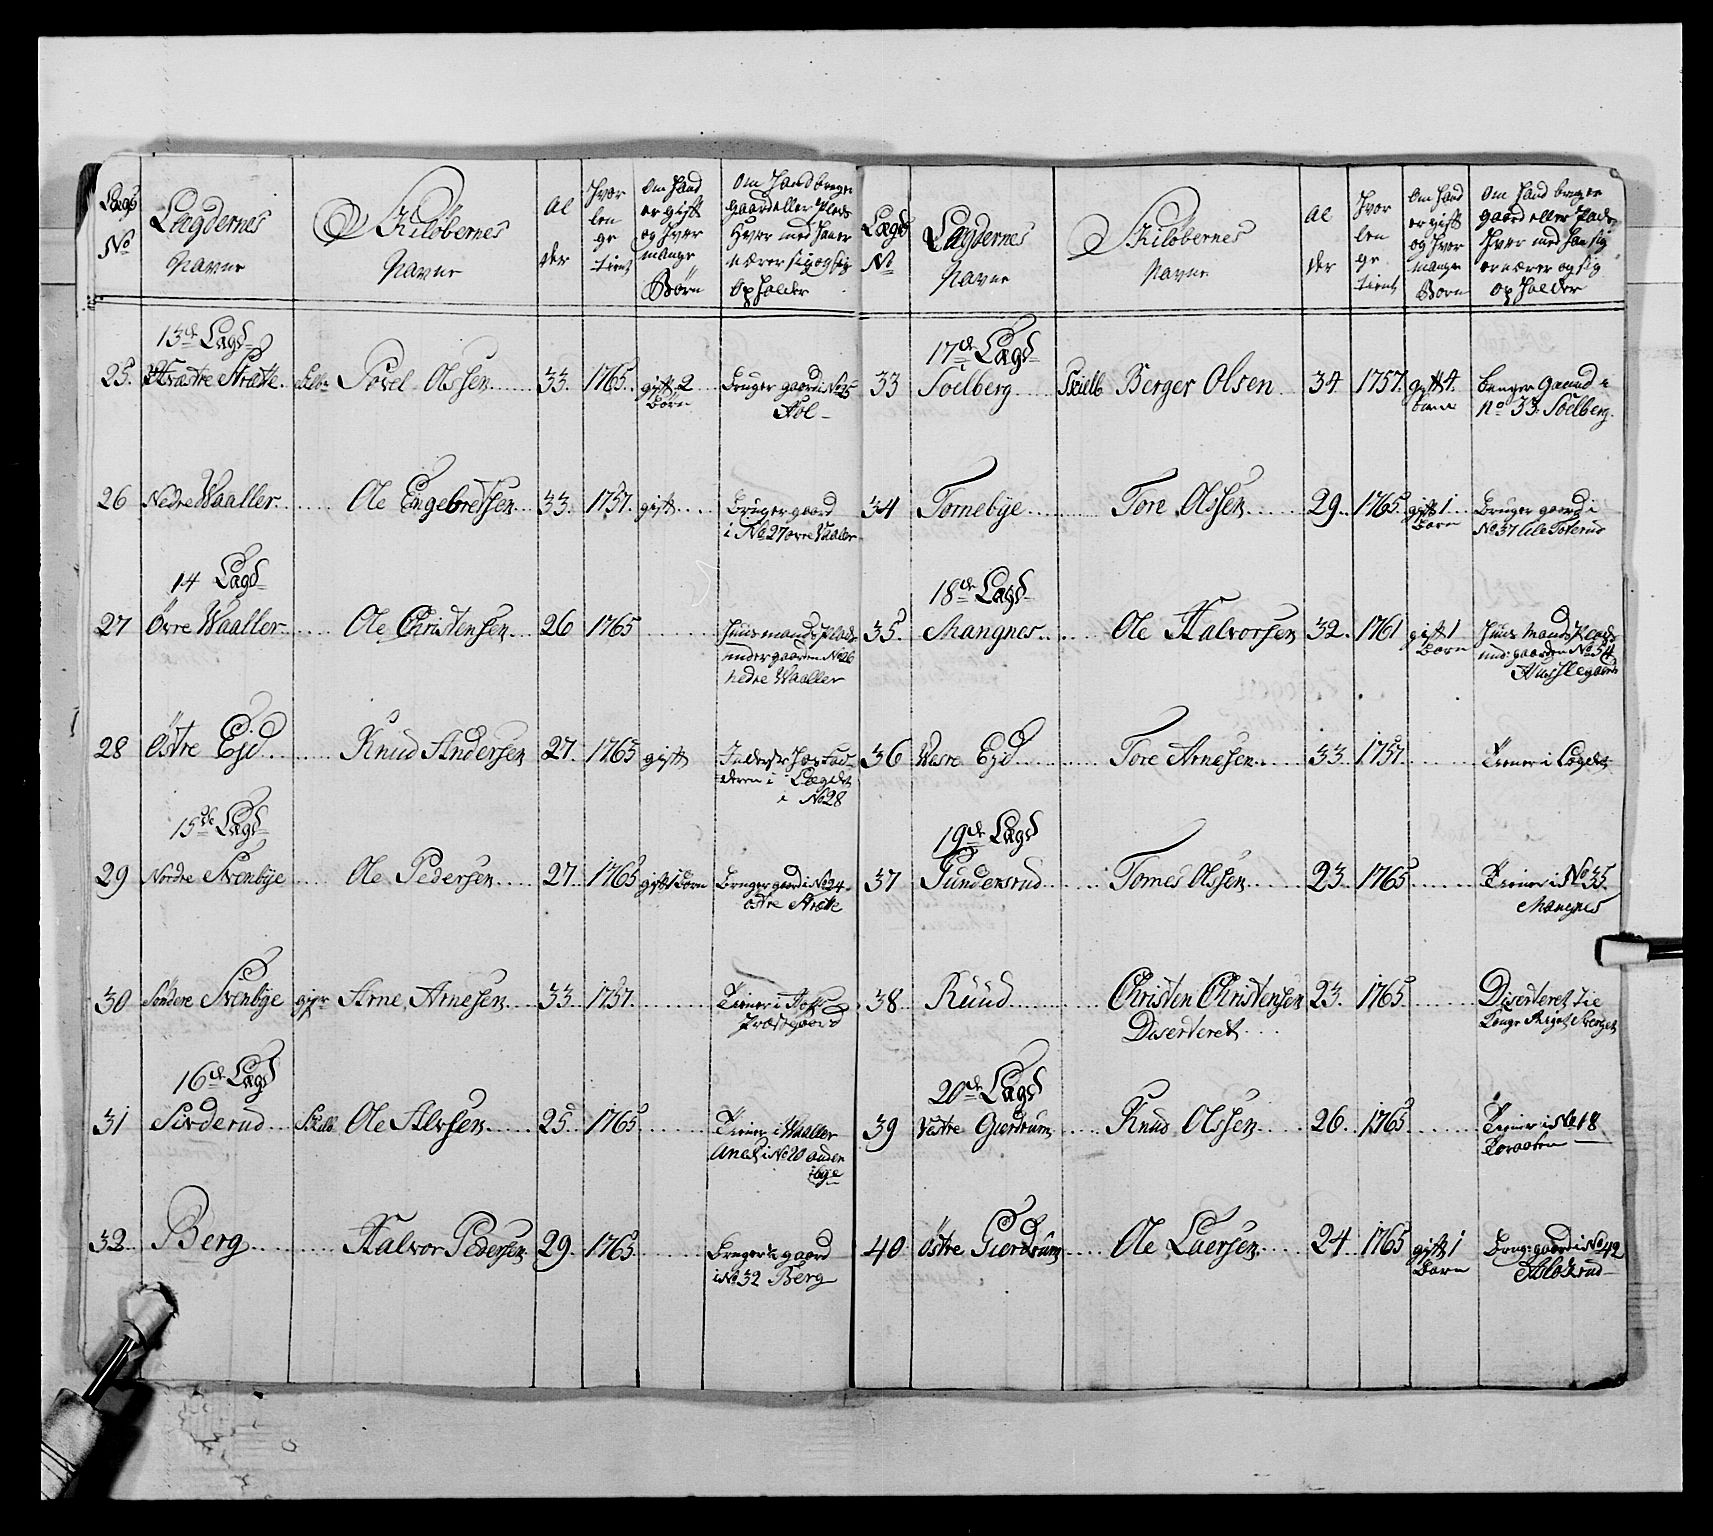 Lægd No | Lægdernes Navne | Skilöbernes Navne | Al der | Hvor len ge tient | Om hand er gift og hver mange Börn | Om hand bruger Gaard eller Plads Hver med han er nærer sig og sig Opholder
13de Lægd
25. Stræte. Povel Olssen 33. 1765. gift 2 Bruger gaard i No 25
Börn
26 Nedre Waaller Ole Engebretssen 33. 1757. gift Bruger gaard
i No 27 övre Waaler
14 Lægd
27 Övre Waaller Ole Christensen 26 1765 Huusmands Plads
under gaarden No 26
nedre Waaller
28 Östre Ejd Knud Andersen 27. 1765 gift Inderst hos Fad
deren i Lægdet
i No 28
15de Lægd
29 Nordre Svenbye Ole Pedersen 27. 1765 gift 1 Börn Bruger gaard i No 24
östre Stræte
30 Söndere Svenbye Arne Arnesen 33 1757. Tiener i
Præstgaard
16de Lægd
31 Sörderud Ole Alvsen 25. 1765 Tiener i Waaller
i No 20
32 Berg Halvor Pedersen 29. 1765 Bruger gaard
i No 32 Berg
Lægd No | Lægdernes Navne | Skilöbernes Navne | Al der | Hvor len ge tient | Om hand er gift og hvor mange Born | Om hand bruger gaard eller Plads Hver med han sig ernærer og sig Opholder
17de Lægd
33 Soelberg Berger Olsen 34 1757. gift 4. bruger Gaard i
Börn no 33 Soelberg.
34 Tornebye Tore Olssen 29. 1765. gift 1 Bruger gaard i
Born No 37 lile Toterud
18de Lægd
35. Mangnes Ole Halvorsen 32. 1761 gift 1 Huus Mands Plads
Born und: gaarden No 54
36 Ejd Tore Arnesen 33. 1757. Tiener i Lægdet
19de Lægd
37 Gundersrud Tomes Olssen 23. 1765 Tiener i No 35
Mangnes
38 Ruud Christen Christensen 23. 1765 Diserteret til
Diserteret Konge Riget Sverget
20de Lægd
39 Vestre Gierdrum Knud Olssen 26. 1765 Tiener i No 18
40 Östre Gierdrum Ole Laersen 24 1765 gift 1 Brug: gaard i No 42
Born Aslaksrud